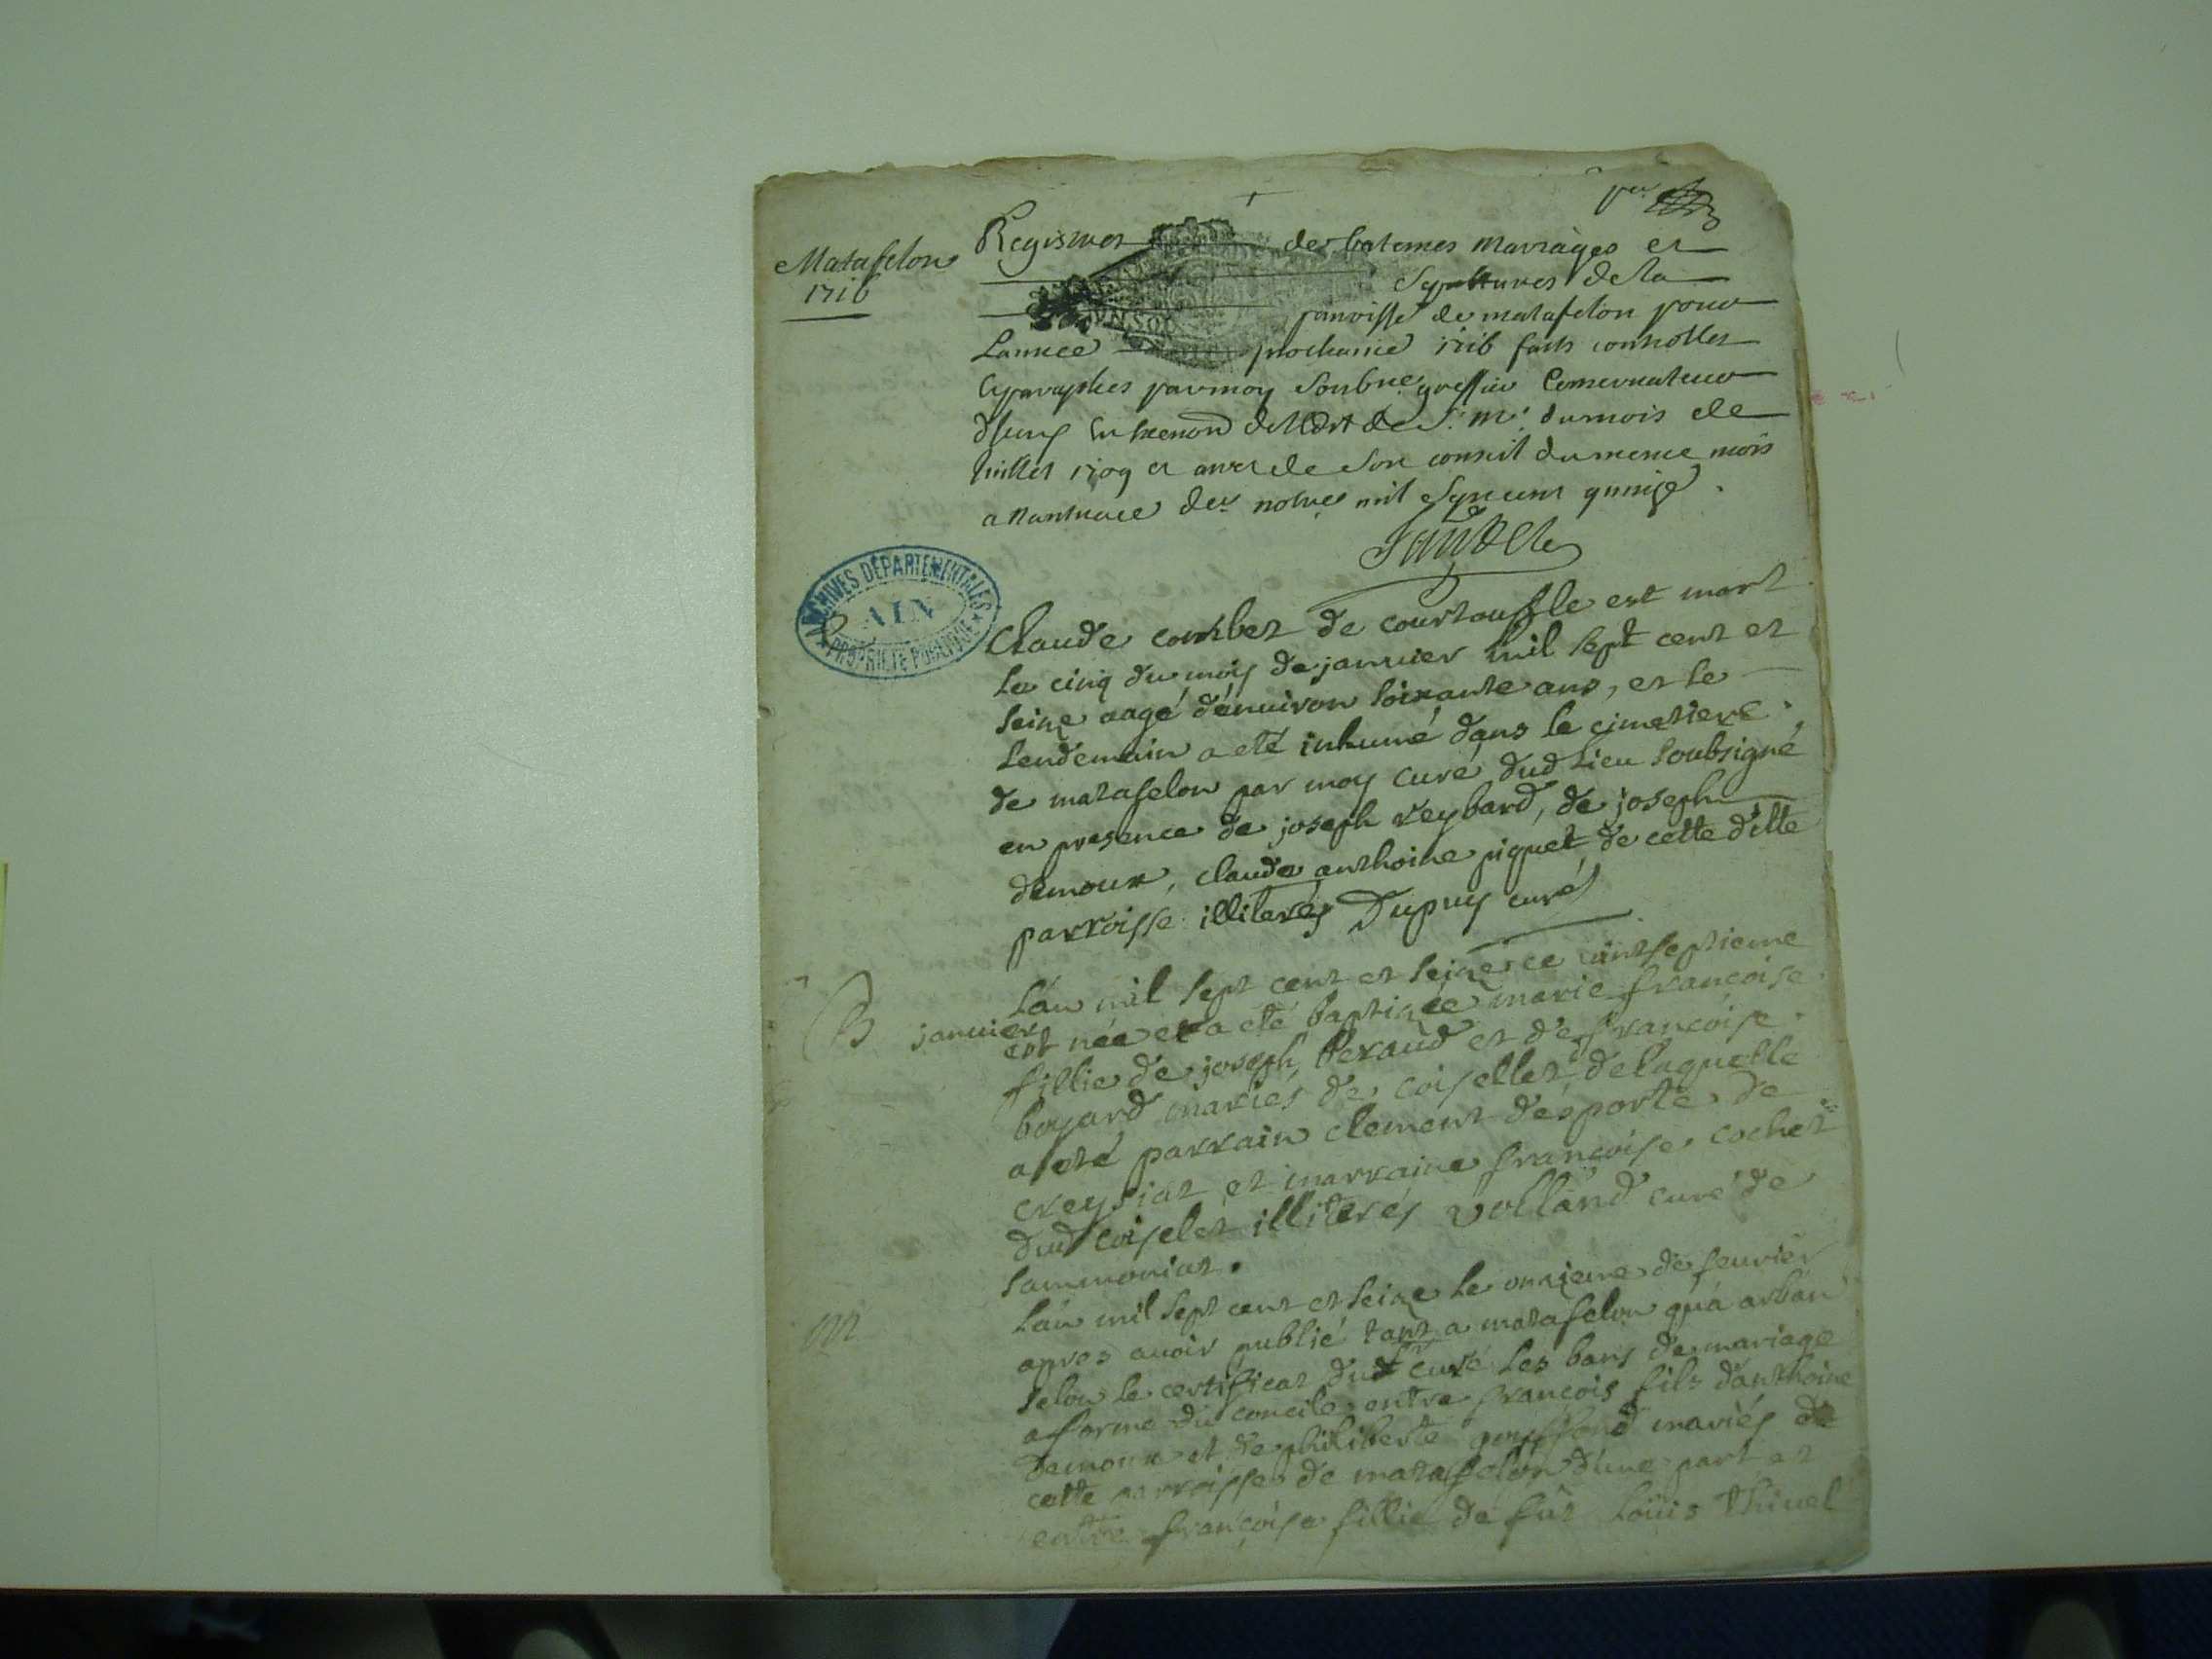 Matafelon
1716
Registres des batemes mariages et
Sepultures de la
parroisse de matafelon pour
Lannee prochaine 1716 faits controlles
Et paraphes par moy Soubne greffier Conservateur
de l'edit de S. M. du mois de
Juillet 1709 et arret de Son conseil du meme mois
a Nantuace mil Sept cent quinze.
ARCHIVES DÉPARTEMENTALES
AIN
PROPRIÉTÉ PUBLIQUE
Claude combet de courtoufle est mort
le cinq du moy de januier mil sept cent et
seize aagé d'énuiron soixante ans, et le
lendemain a eté inhumé dans le cimetiere
de matafelon par moy curé dud lieu soubsigné
en presence de joseph reybard, de joseph
démoux, claude anthoine piquet de cette ditte
parroisse illiterés Dupuy curé
B
L'án mil sept cent et seize ce uintseptieme
januier est née et a eté baptizée marie françoise
fillie de joseph beraud et de françoise
boyard mariés de coisellet, de laquelle
a eté parrain clement désporte de
creysiat et marraine françoise cochet
dud coiselet illiterés vollánd curé de
sammoniat.
M
L'án mil sept cent et seize le onzieme de feurier
apres auoir publié tant a matafelon qu'a arban
selon le certificat dud sr curé les bans de mariage
a forme du concile entre françois fils d'anthoine
demoux et de philiberte mariés de
cette parroisse de matafelon d'une part et
entre françoise fillie de fût Loüis thiuel